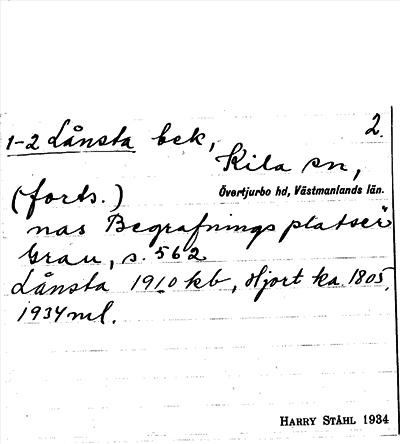 2.
1-2 Lånsta bek,
Kila sn,
Övertjurbo hd, Västmanlands län.
(forts.)
nas Begrafnings platser"
Grau, s. 562
Lånsta 1910 kb, Hjort ka 1805,
1934 ml.
HARRY STÅHL 1934